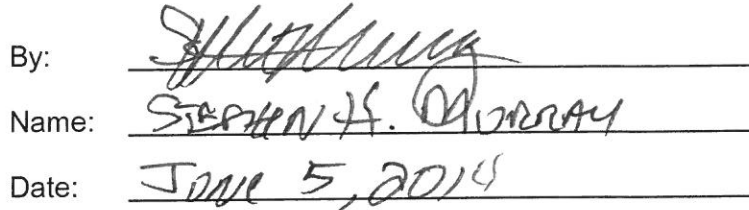 By:
Name: STEPHEN H. MURRAY
Date: JUNE 5, 2014